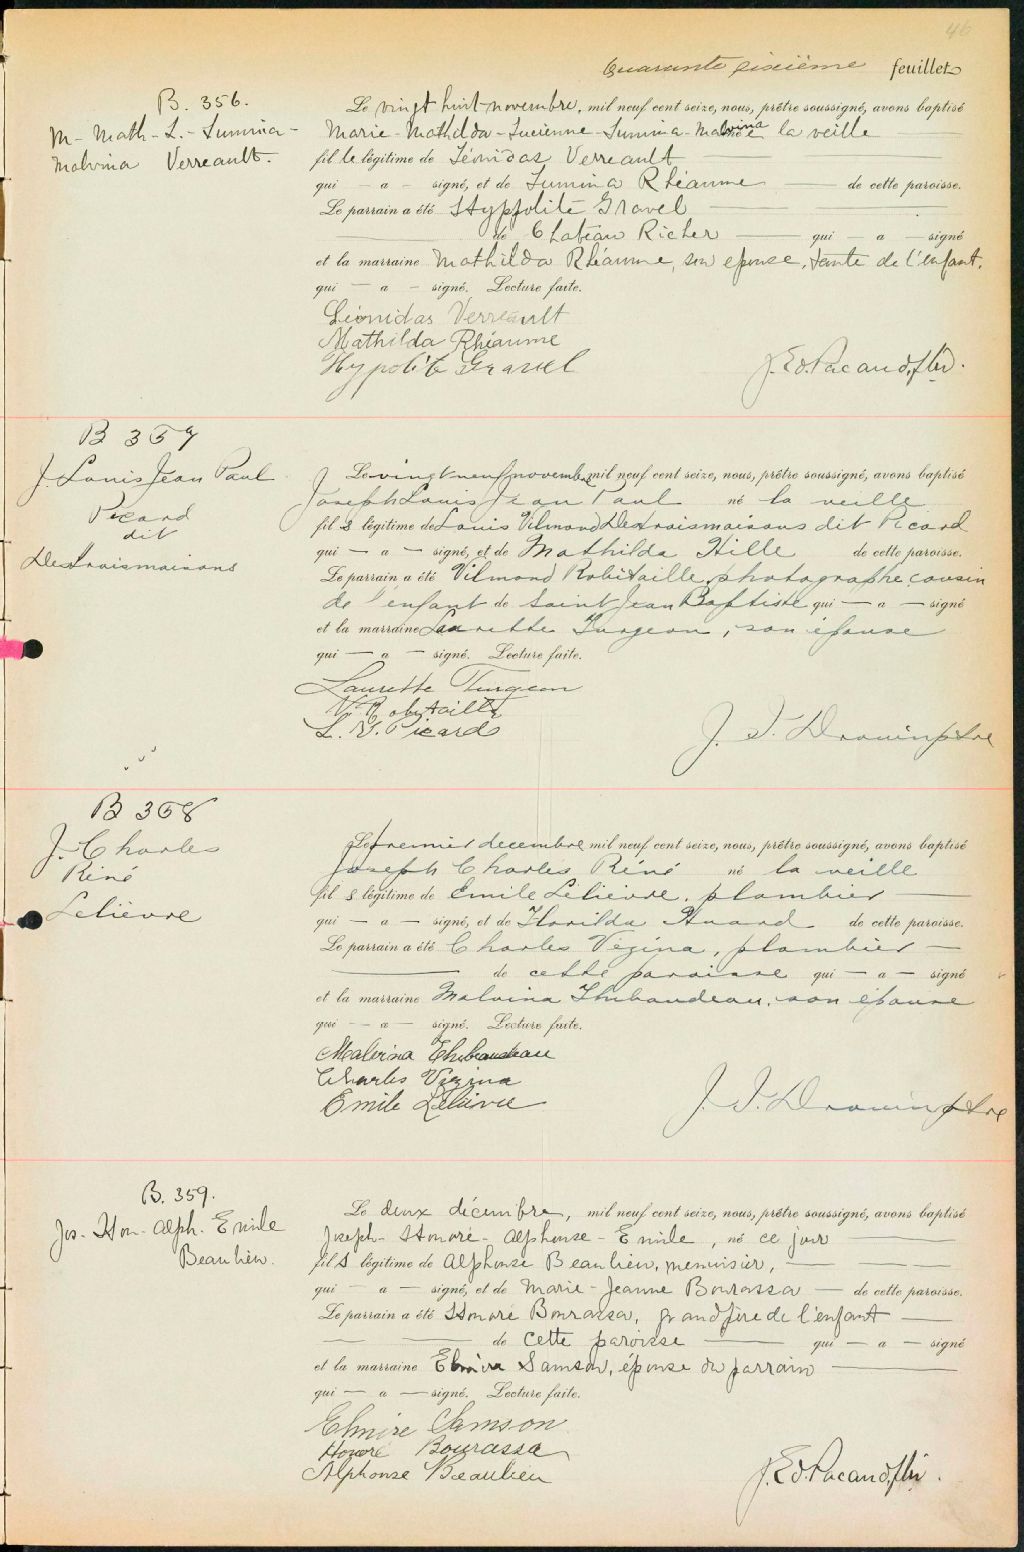 46
Quarante sixième feuillet
B. 356.
M- Math- L.- Lumina-
Malvina Verreault.
Le vingt huit novembre, mil neuf cent seize, nous, prêtre soussigné, avons baptisé
Marie-Mathilda-Lucienne-Lumina-Malvina née la veille
fille légitime de Léonidas Verreault
qui — a — signé, et de Lumina Rhéaume — de cette paroisse.
Le parrain a été Hyppolite Gravel
de Chateau Richer — qui — a — signé
et la marraine Mathilda Rhéaume, son épouse, tante de l'enfant.
qui — a — signé. Lecture faite.
Léonidas Verreault
Mathilda Rhéaume
Hypolite Gravel
J. Ed. Pacaud, ptre.
B 357
J. Louis Jean Paul
Picard
dit
Destroismaisons
Le vingt neuf novembre mil neuf cent seize, nous, prêtre soussigné, avons baptisé
Joseph Louis Jean Paul né la veille
fil s légitime de Louis Vilmond Destroismaisons dit Picard
qui — a — signé, et de Mathilda Hille de cette paroisse.
Le parrain a été Vilmond Robitaille, photographe, cousin
de l'enfant de Saint Jean Baptiste qui — a — signé
et la marraine Laurette Turgeon, son épouse
qui — a — signé. Lecture faite.
Laurette Turgeon
V. Robitaille
L. V. Picard
J. T. Drouin ptre
B 358
J. Charles
Réné
Lelièvre
Le premier decembre mil neuf cent seize, nous, prêtre soussigné, avons baptisé
Joseph Charles Réné né la veille
fil s légitime de Emile Lelièvre, plombier —
qui — a — signé, et de Florilda Huard de cette paroisse.
Le parrain a été Charles Vézina, plombier —
— de cette paroisse qui — a — signé
et la marraine Malvina Thibaudeau, son épouse
qui — a — signé. Lecture faite.
Malvina Thibaudeau
Charles Vézina
Emile Lelièvre
J. T. Drouin ptre
B. 359.
Jos- Hon- Alph- Emile
Beaulieu.
Le deux décembre, mil neuf cent seize, nous, prêtre soussigné, avons baptisé
Joseph- Honoré- Alphonse- Emile, né ce jour —
fil s légitime de Alphonse Beaulieu, menuisier, —
qui — a — signé, et de Marie-Jeanne Bourassa — de cette paroisse.
Le parrain a été Honoré Bourassa, grand père de l'enfant —
— de cette paroisse — qui — a — signé
et la marraine Elmire Samson, épouse du parrain —
qui — a — signé. Lecture faite.
Elmire Samson
Honoré Bourassa
Alphonse Beaulieu
J. Ed. Pacaud, ptre.